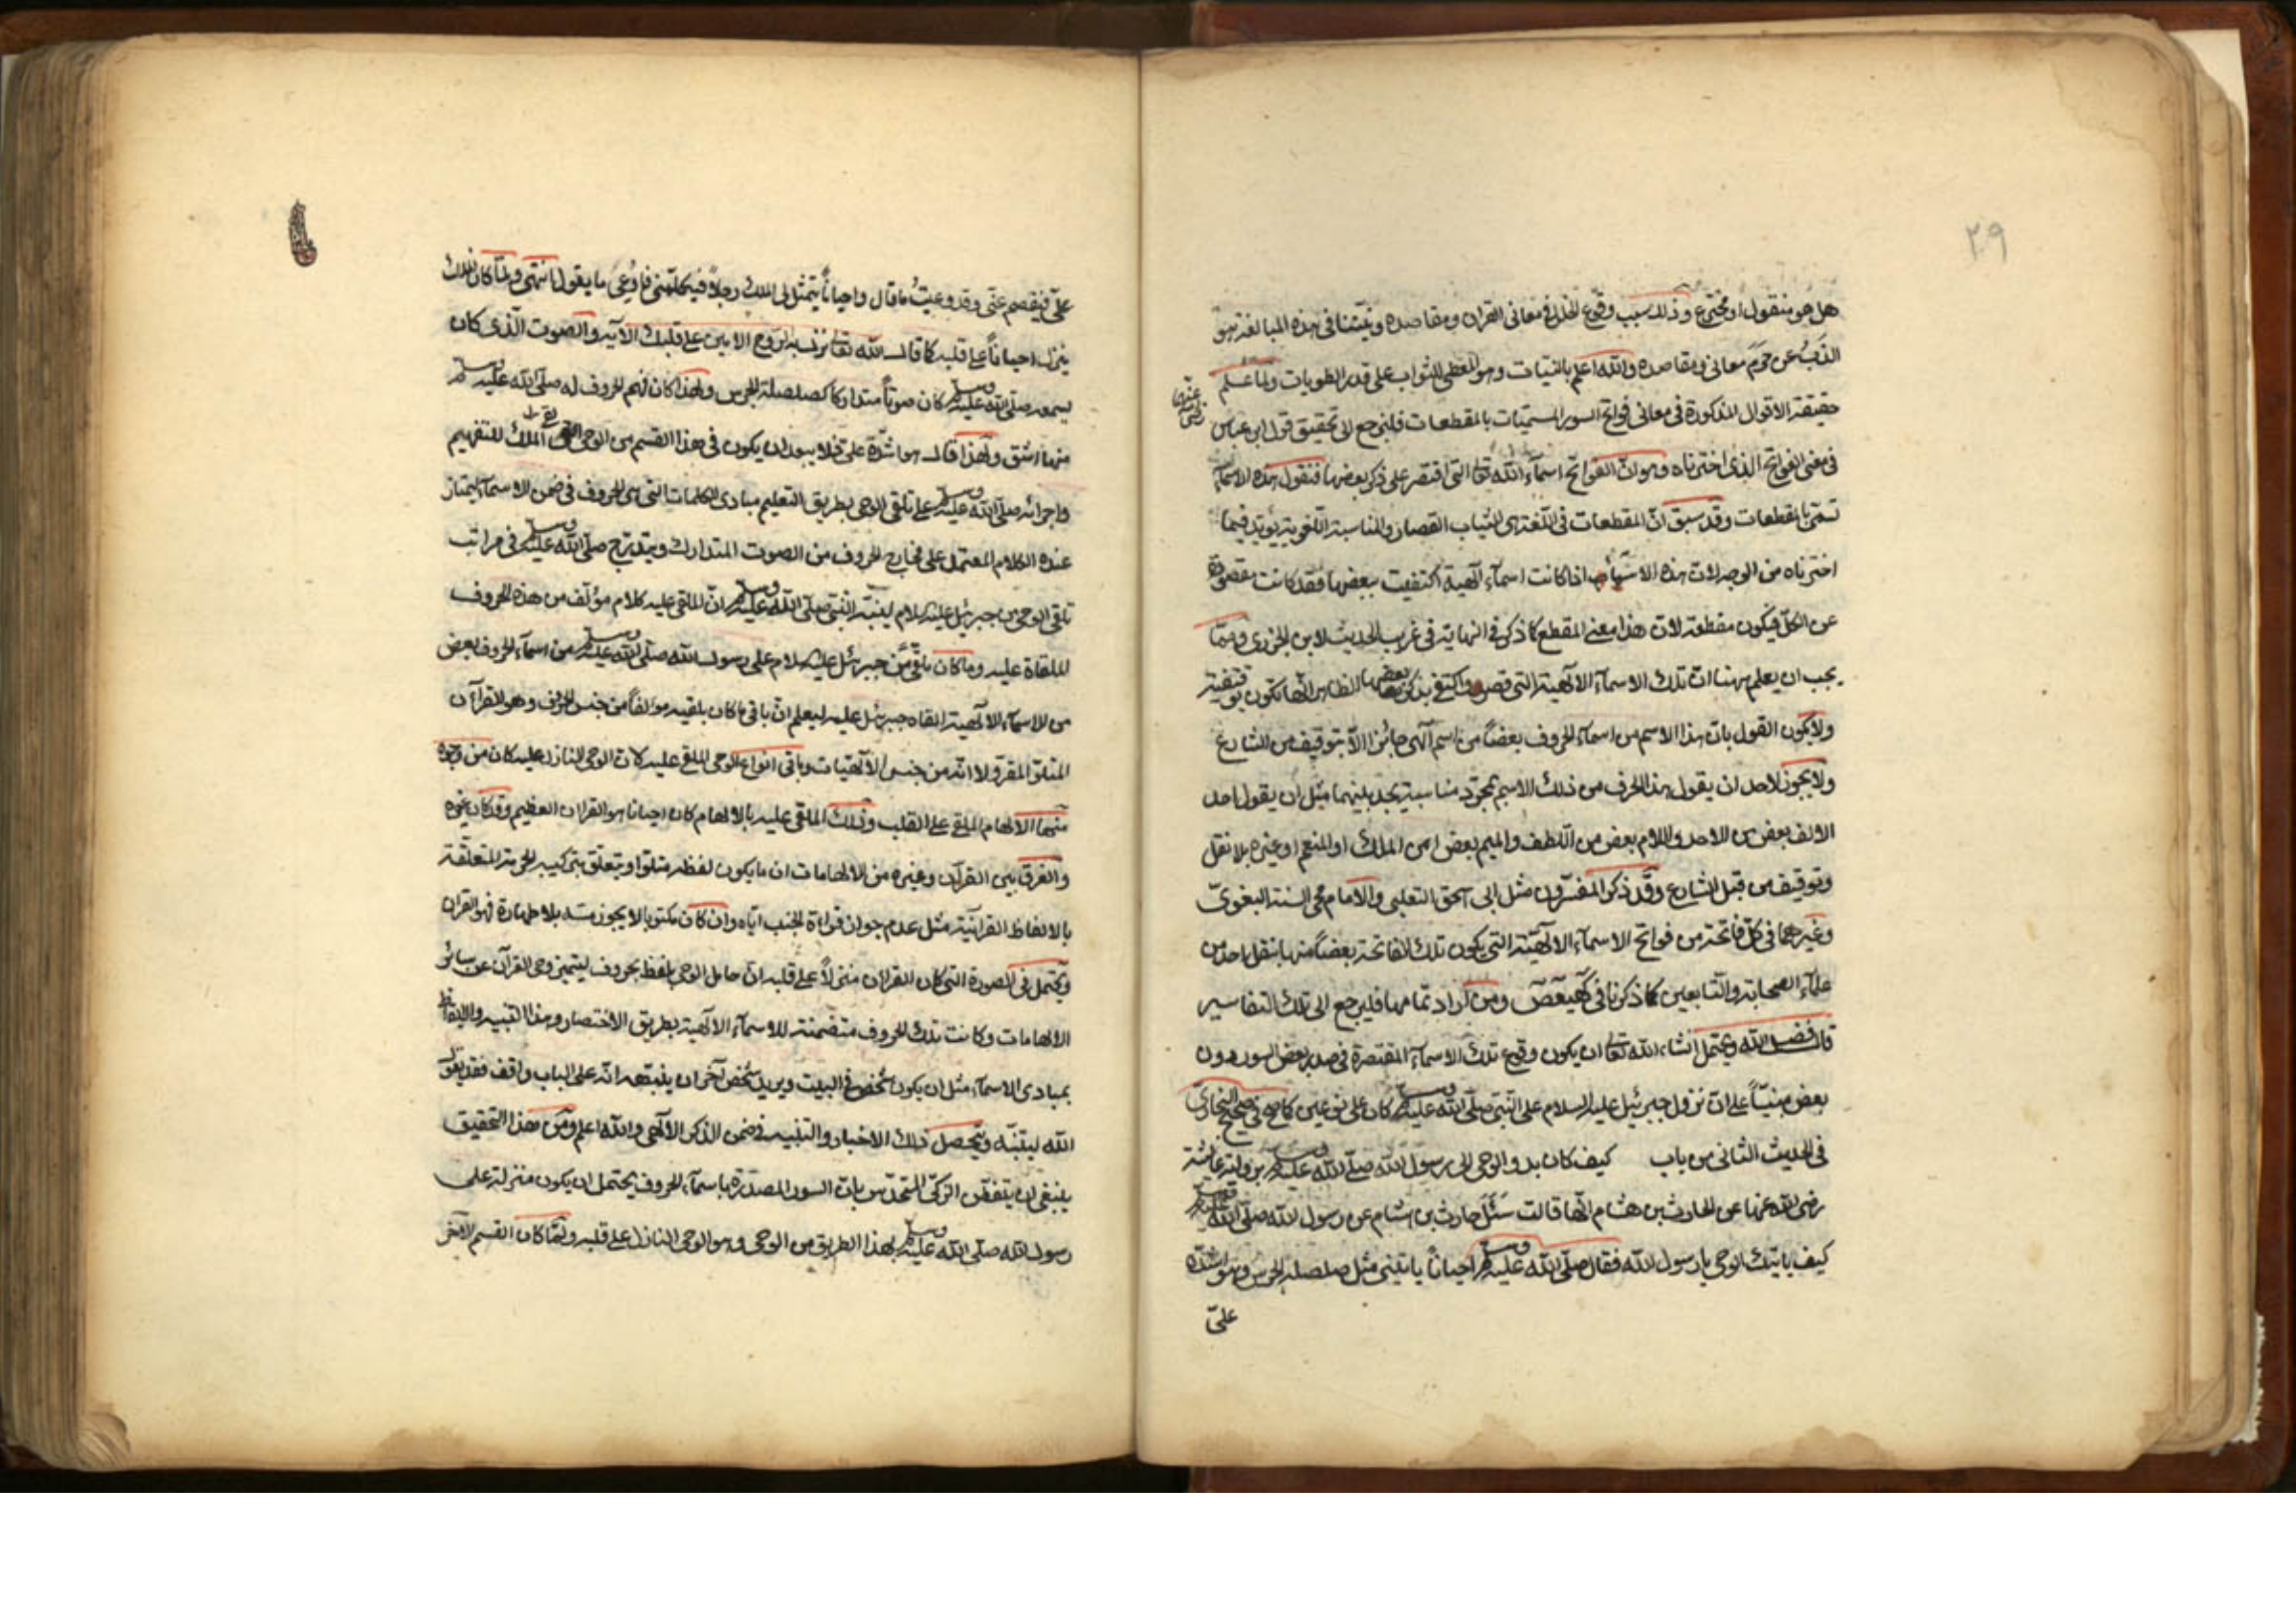 ٢٠٩
هل هو منقول او مخترع وذلك سبب وقوع الخلل في معاني القرآن ومقاصده ونيتنا في هذه المبالغة هو
الذب عن حرم معاني ومقاصده والله اعلم بالنيات وهو المعطي للثواب على قدر الطويات ولما علم
حقيقة الاقوال المذكورة في معاني فواتح السور المسميات بالمقطعات فلنرجع الى تحقيق قول ابن عباس
رضي عنهما
في معنى الفواتح الذي اخترناه وهو انّ الفواتح اسماء الله تعالى التي اقتصر على ذكر بعضها فنقول هذه الاسماء
تسمى بالمقطعات وقد سبق انّ المقطعات في اللغة هي الثياب القصار والمناسبة اللغوية يؤيد فيما
اخترناه من الوجه لان هذه الاسماء اذا كانت اسماء آلهية اكتفيت ببعضها فقد كانت مقصورة
عن الكل فيكون مقطعة لان هذا معنى المقطع كما ذكر في النهاية في غريب الحديث لابن الجزري ومما
يجب ان يعلم ههنا ان تلك الاسماء الالهية التي قصر واكتفي بذكر بعضها الظاهر انها تكون توقيفية
ولا يكون القول بان هذا الاسم من اسماء الحروف بعضاً من اسم آلهي جائزا الا بتوقيف من الشارع
ولا يجوز لاحد ان يقول هذا الحرف من ذلك الاسم بمجرد مناسبة يجد بينهما مثل ان يقول احد
الالف بعض من الاحد واللام بعض من اللطف والميم بعض من الملك او المنعم او غيره بلا نقل
وتوقيف من قبل الشارع وقد ذكر المفسرون مثل ابي اسحق الثعلبي والامام محي السنة البغوي
وغيرهما في كل فاتحة من فواتح الاسماء الالهية التي يكون تلك الفاتحة بعضاً منها بنقل احد من
علماء الصحابة والتابعين كما ذكرنا في كهيعص ومن اراد تمامها فليرجع الى تلك التفاسير
قال فضل الله ويحتمل انشاء الله تعالى ان يكون وقوع تلك الاسماء المقتصرة في صدر بعض السور دون
بعض مبنيّاً على ان نزول جبرئيل عليه السلام على النبي صلى الله عليه وسلم كان على نوعين كما في صحيح البخاري
في الحديث الثاني من باب كيف كان بدو الوحي الى رسول الله صلى الله عليه وسلم برواية عائشة
رضي الله عنها عن الحارث بن هشام انها قالت سئل حارث بن هشام عن رسول الله صلى الله عليه وسلم
كيف ياتيك الوحي يا رسول الله فقال صلى الله عليه وسلم احياناً ياتيني مثل صلصلة الجرس وهو اشده
عليّ
عليّ فيفصم عني وقد وعيت ما قال واحياناً يتمثل لي الملك رجلاً فيكلمني فاوعي ما يقول انتهى ولما كان الملك
ينزل احياناً على قلبه كما قال الله تعالى نزل به الروح الامين على قلبك الآية والصوت الذي كان
يسمعه صلى الله عليه وسلم كان صوتاً متداركا كصلصلة الجرس ولهذا كان فهم الحروف له صلى الله عليه وسلم
منها اشق ولهذا قال هو اشدّه على فلا يبعد ان يكون في هذا القسم من الوحي الملك للتفهيم
واجرائه صلى الله عليه وسلم على تلقي الوحي بطريق التعليم مبادي الكلمات التي هي الحروف في ضمن الاسماء ليمتاز
عنده الكلام المعتمل على مخارج الحروف من الصوت المتدارك ويتدرج صلى الله عليه وسلم في مراتب
تلقي الوحي من جبرئيل عليه السلام لينبّه النبي صلى الله عليه وسلم ان الملقى عليه كلام مؤلف من هذه الحروف
الملقاة عليه وما كان يلقى من جبرئيل عليه السلام على رسول الله صلى الله عليه وسلم من اسماء الحروف بعض
من الاسماء الالهية القاه جبرئيل عليه ليعلم انّ باقي ما كان يلقيه مؤلفاً من جنس الحروف وهو القرآن
المتلو المقرو لا انه من جنس الالهيات وباقي انواع الوحي الملقى عليه كان الوحي النازل عليه كان من وجوه
منها الالهام الملقى على القلب وذلك الملقى عليه بالالهام كان احيانا هو القران العظيم وقد كان غيره
والفرق بين القرآن وغيره من الالهامات ان ما يكون لفظه متلوا ويتعلق بتركيبه الحرمة المتعلقة
بالالفاظ القرآنية مثل عدم جواز قراءة الجنب اياه وان كان مكتوبا لا يجوز مسه بلا طهارة فهو القران
ويحتمل في الصورة التي كان القرآن منزلاً على قلبه ان حامل الوحي يلفظ بحروف ليتميز وحي القرآن عن سائر
الالهامات وكانت تلك الحروف متضمنة للاسماء الالهية بطريق الاختصار وهذا التنبيه والايقاظ
بمبادي الاسماء مثل ان يكون شخص في البيت ويريد شخص آخر ان ينبهه انه على الباب واقف فقد يقول
الله لينبّه ويتحصل ذلك الاخبار والتنبيه في ضمن الذكر الآلهي والله اعلم ومن هذا التحقيق
ينبغي ان يتفطن الزكي المتحدس بان السور المصدّرة باسماء الحروف يحتمل ان يكون منزلة على
رسول الله صلى الله عليه وسلم بهذا الطريق من الوحي وهو الوحي النازل على قلبه ولما كان القسم الآخر